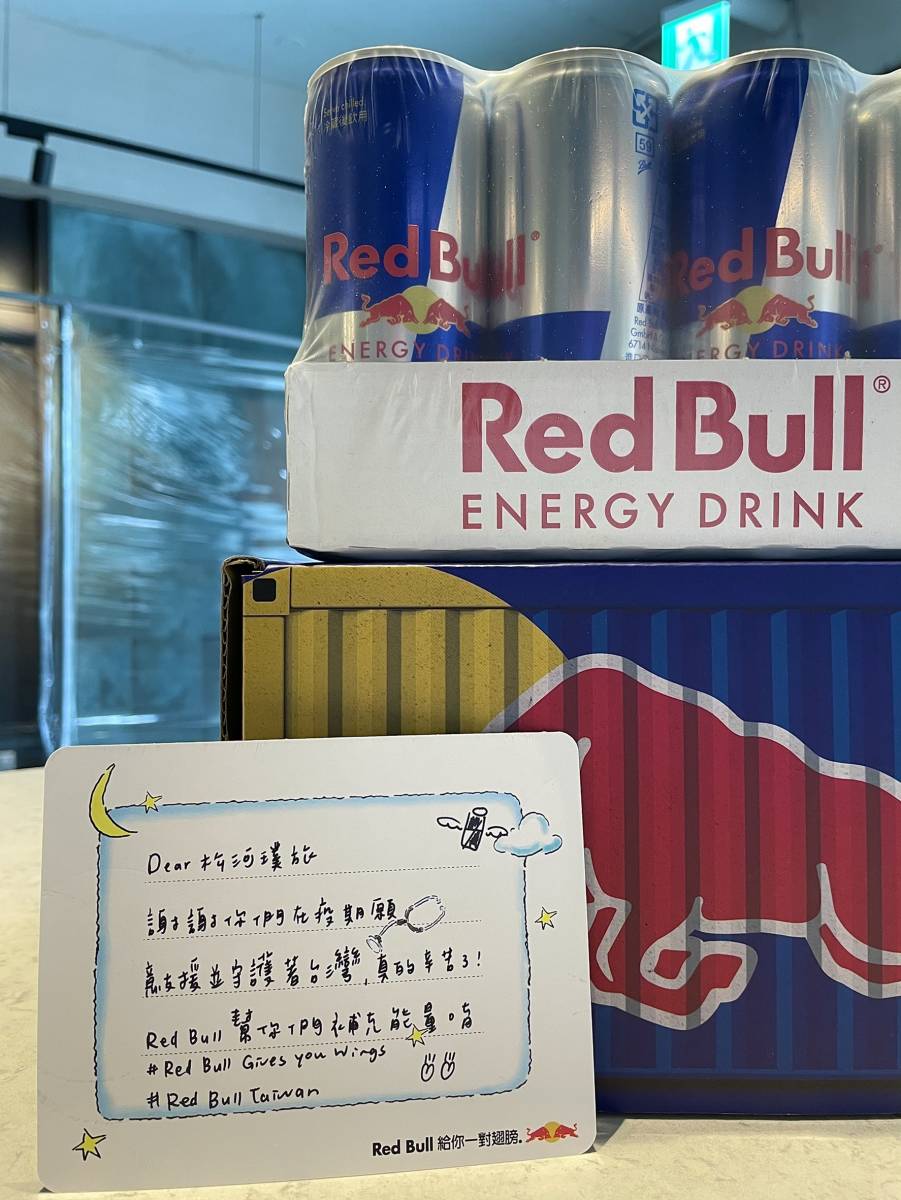 Serve chilled
冷藏後飲用
59
Red Bull®
ENERGY DRINK
Red Bull
ENERGY DRINK
原產
Red
GmbH
6714
進口
Red Bull®
ENERGY DRINK
Dear 松河璞旅
謝謝你們在疫期願
意支援並守護著台灣,真的辛苦了!
Red Bull 幫你們補充能量唷
# Red Bull Gives you Wings
# Red Bull Taiwan
Red Bull 給你一對翅膀.